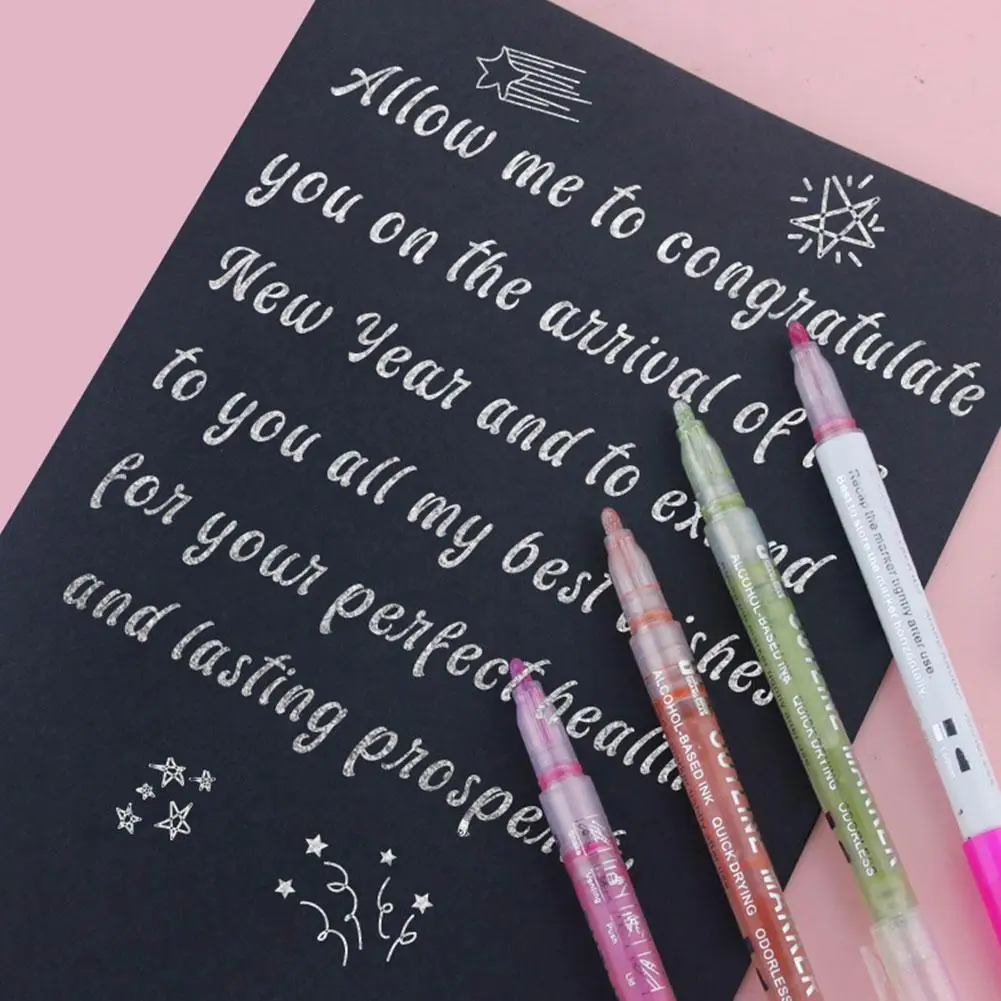 Allow me to congratulate
you on the arrival of
New Year and to
to you all my best
for your perfect
and lasting
Recap the marker tightly after use
Best to store the marker horizontally
ALCOHOL-BASED INK QUICK DRYING ODORLESS
MARKER
ALCOHOL-BASED INK QUICK DRYING ODORLESS
MARKER
Push
Lid